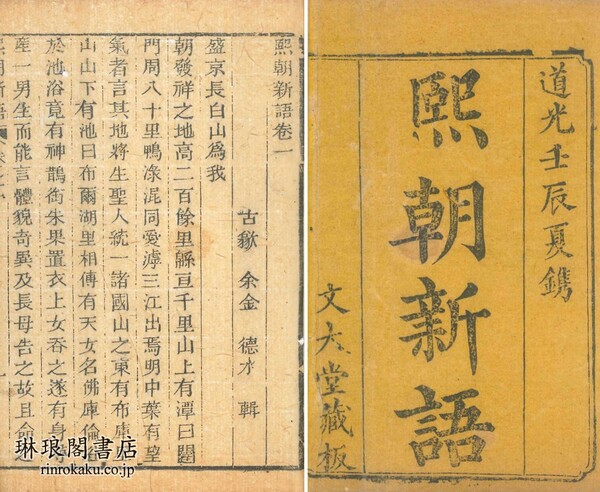 道光壬辰夏鐫
熙朝新語
文大堂藏板
熙朝新語卷一
古歙 余金 德水 輯
盛京長白山為我
朝發祥之地高二百餘里緜亘千里山上有潭曰闥
門周八十里鴨淥混同愛滹三江出焉明中葉有望
氣者言其地將生聖人統一諸國山之東有布庫
山山下有池曰布爾湖里相傳有天女名佛庫倫
於池浴竟有神鵲銜朱果置衣上女吞之遂有身
產一男生而能言體貌奇異及長母告之故且命
朝新語
琳琅閣書店
rinrokaku.co.jp